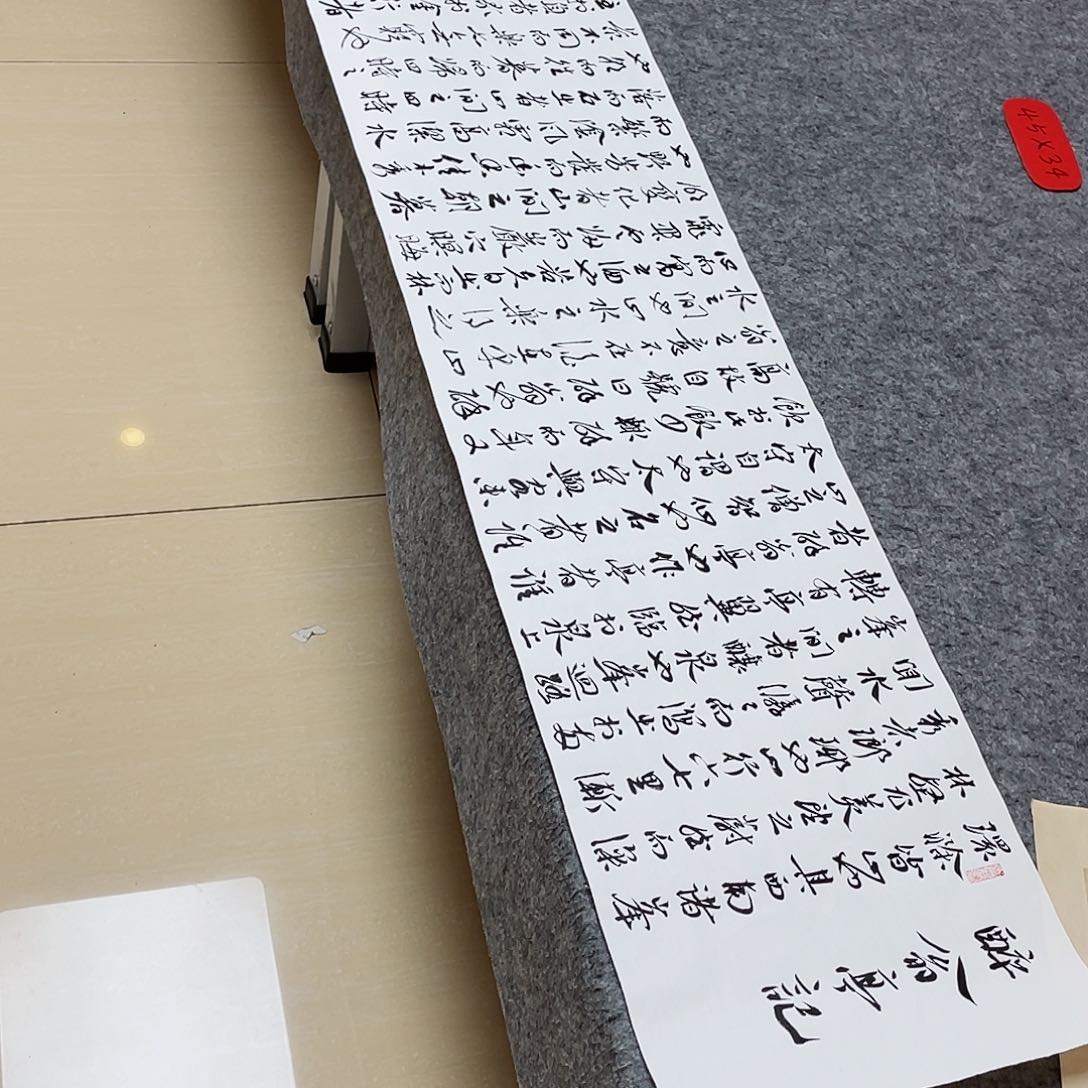 醉翁亭記
環滁皆山也其西南諸峯
林壑尤美望之蔚然而深
秀者瑯琊也山行六七里漸
聞水聲潺々而瀉出於兩
峯之間者釀泉也峯迴路
轉有亭翼然臨於泉上
者醉翁亭也作亭者誰
山之僧智仙也名之者誰
太守自謂也太守與客來
飲於此飲少輒醉而年又
高故自號曰醉翁也醉
翁之意不在酒在乎山
水之間也山水之樂得之
心而寓之酒也若夫日出而林
霏雲歸而巖穴暝晦
明變化者山間之朝暮
也野芳發而幽香佳木秀
而繁陰風霜高潔水
落而石出者山間之四時
也朝而往暮而歸四時之
景不同而樂亦無窮也
45X34